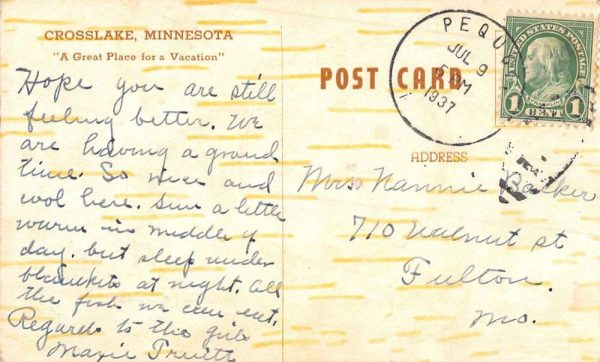 CROSSLAKE, MINNESOTA
"A Great Place for a Vacation"
Hope you are still
feeling better. We
are having a grand
time. So nice and
cool here. Sun a little
warm in middle of
day. but sleep under
blankets at night. All
the fish we can eat.
Regards to the girls
Marie Pruett
POST CARD
PEQUO
JUL 9
5 PM
1937
UNITED STATES POSTAGE
1 CENT 1
ADDRESS
Mrs. Nannie Barker
710 Walnut st
Fulton.
Mo.